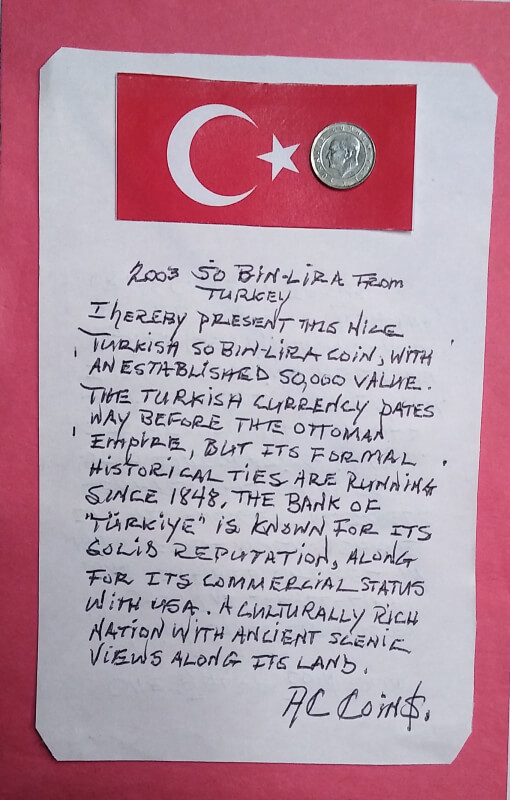 2003 50 BIN-LIRA FROM
TURKEY
I HEREBY PRESENT THIS NICE
TURKISH 50 BIN-LIRA COIN, WITH
AN ESTABLISHED 50,000 VALUE.
THE TURKISH CURRENCY DATES
WAY BEFORE THE OTTOMAN
EMPIRE, BUT ITS FORMAL
HISTORICAL TIES ARE RUNNING
SINCE 1848. THE BANK OF
"TÜRKIYE" IS KNOWN FOR ITS
SOLID REPUTATION, ALONG
FOR ITS COMMERCIAL STATUS
WITH USA. A CULTURALLY RICH
NATION WITH ANCIENT SCENIC
VIEWS ALONG ITS LAND.
AC COIN$.